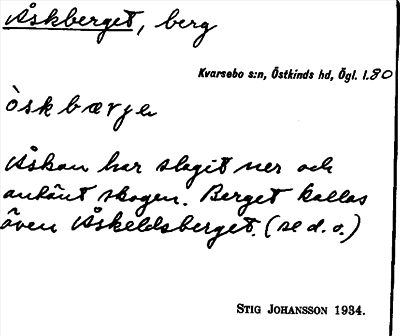 Åskberget, berg
Kvarsebo s:n, Östkinds hd, Ögl. l.80
òskbærjə
Åskan har slagit ner och
antänt skogen. Berget kallas
även Åskeldsberget. (se d. o.)
Stig Johansson 1934.